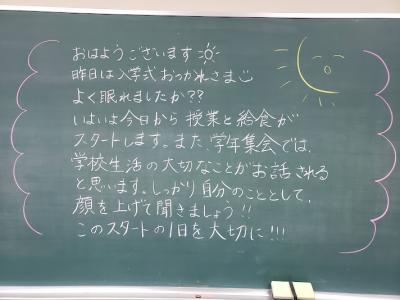 おはようございます
昨日は入学式おつかれさま
よく眠れましたか??
いよいよ今日から授業と給食が
スタートします。また、学年集会では、
学校生活の大切なことがお話される
と思います。しっかり自分のこととして、
顔を上げて聞きましょう!!
このスタートの1日を大切に!!!